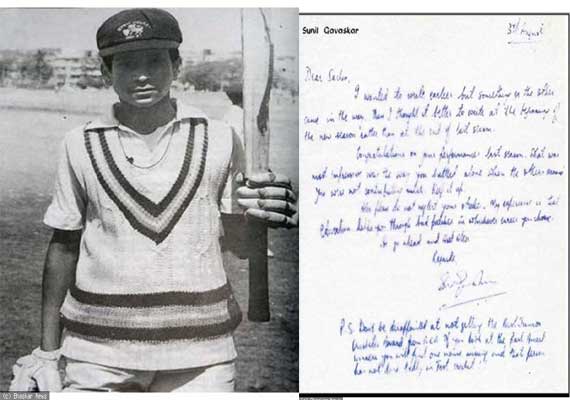 Sunil Gavaskar
3rd August
Dear Sachin,
I wanted to write earlier but something or the other
came in the way. Then I thought it better to write at the beginning of
the new season rather than at the end of last season.
Congratulations on your performances last season. What was
most impressive was the way you batted alone when the others around
you were not contributing much. Keep it up.
Also please do not neglect your studies. My experience is that
Education helps you through bad patches in whichever career you choose.
So go ahead and best wishes
Regards,
P.S. Don't be disappointed at not getting the Best Junior
Cricketer Award from BCA. If you look at the past award
winners you will find one name missing and that person
has not done badly in Test cricket!!
(c) Bhaskar News